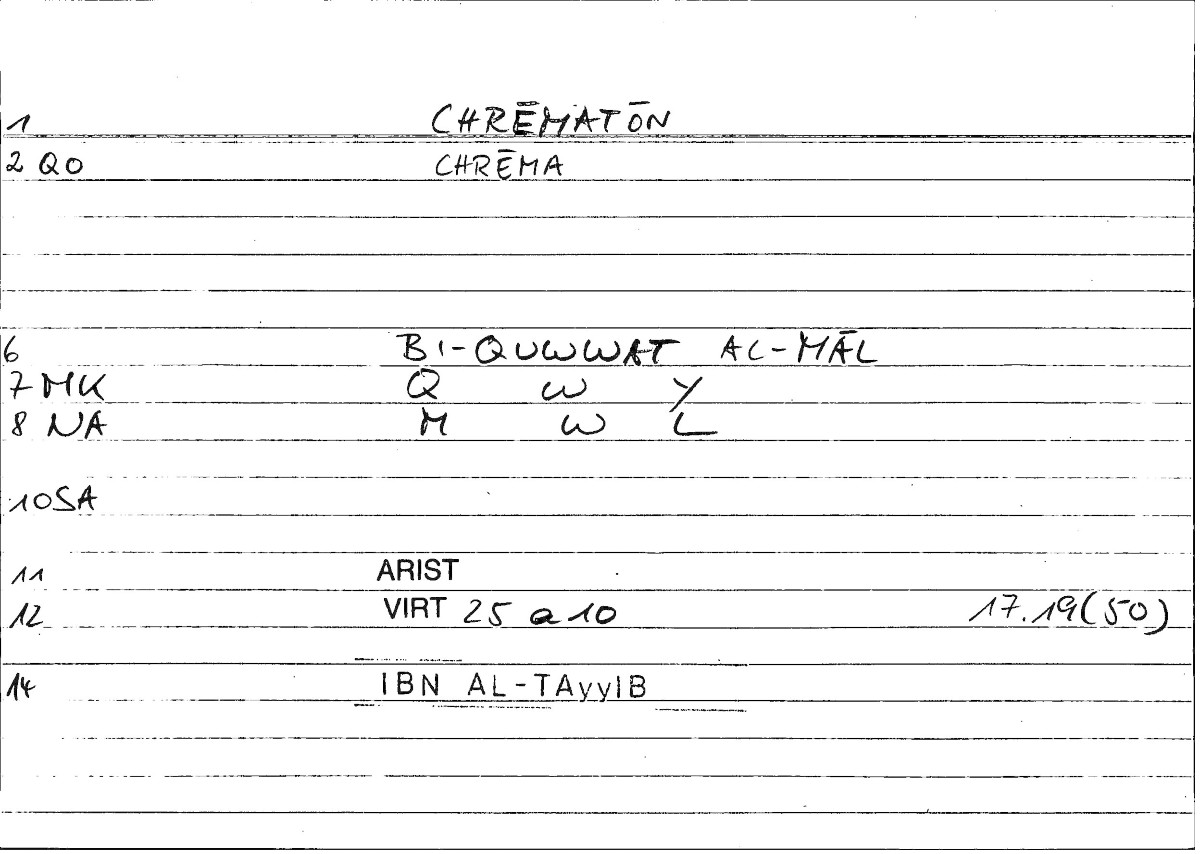 1 CHRĒMATŌN
2 QO CHRĒMA
6 BI-QUWWAT AL-MĀL
7 MK Q W Y
8 NA M W L
10 SA
11 ARIST
12 VIRT 25 a 10 17.19(50)
14 IBN AL-TAyyIB